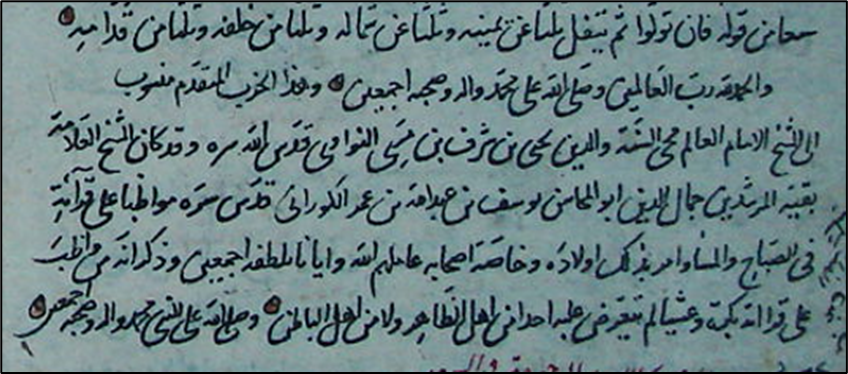 سبعا من قوله فان تولوا ثم يتفل ثلثا عن يمينه وثلثا عن شماله وثلثا من خلفه وثلثا من قدامه
والحمد لله رب العالمين وصلى الله على محمد واله وصحبه اجمعين وهذا الحزب المتقدم منسوب
الى الشيخ الامام العالم محى السنة والدين يحيى بن شرف بن مرى النواوى قدس الله سره وقد كان الشيخ العلامة
بقية المرشدين جمال الدين ابو المحاسن يوسف بن عبدالله بن عمر الكورانى قدس سره مواظبا على قرآءته
فى الصباح والمسا وامر بذلك اولاده وخاصة اصحابه عاملهم الله وايانا بلطفه اجمعين وذكر انه من واظب
على قرائته بكرة وعشيا لم يتعرض عليه احد من اهل الظاهر ولا من اهل الباطن وصلى الله على النبى محمد واله وصحبه اجمعين